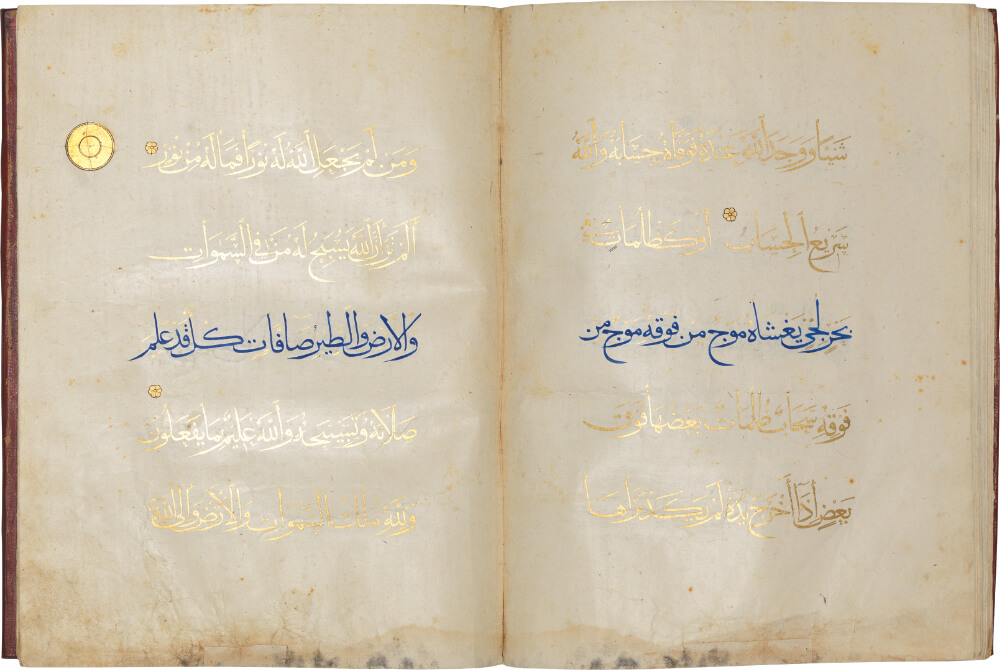 شَيْئًا وَوَجَدَ اللّٰهَ عِنْدَهُ فَوَفَّاهُ حِسَابَهُ وَاللّٰهُ
سَرِيعُ الْحِسَابِ أَوْ كَظُلُمَاتٍ فِي
بحر لجي يغشاه موج من فوقه موج من
فَوْقِهِ سَحَابٌ ظُلُمَاتٌ بَعْضُهَا فَوْقَ
بَعْضٍ إِذَا أَخْرَجَ يَدَهُ لَمْ يَكَدْ يَرَاهَا
وَمَنْ لَمْ يَجْعَلِ اللّٰهُ لَهُ نُورًا فَمَا لَهُ مِنْ نُورٍ
أَلَمْ تَرَ أَنَّ اللّٰهَ يُسَبِّحُ لَهُ مَنْ فِي السَّمٰوَاتِ
والارض والطير صافات كل قد علم
صَلَاتَهُ وَتَسْبِيحَهُ وَاللّٰهُ عَلِيمٌ بِمَا يَفْعَلُونَ
وَلِلّٰهِ مُلْكُ السَّمٰوَاتِ وَالْأَرْضِ وَإِلَى اللّٰهِ